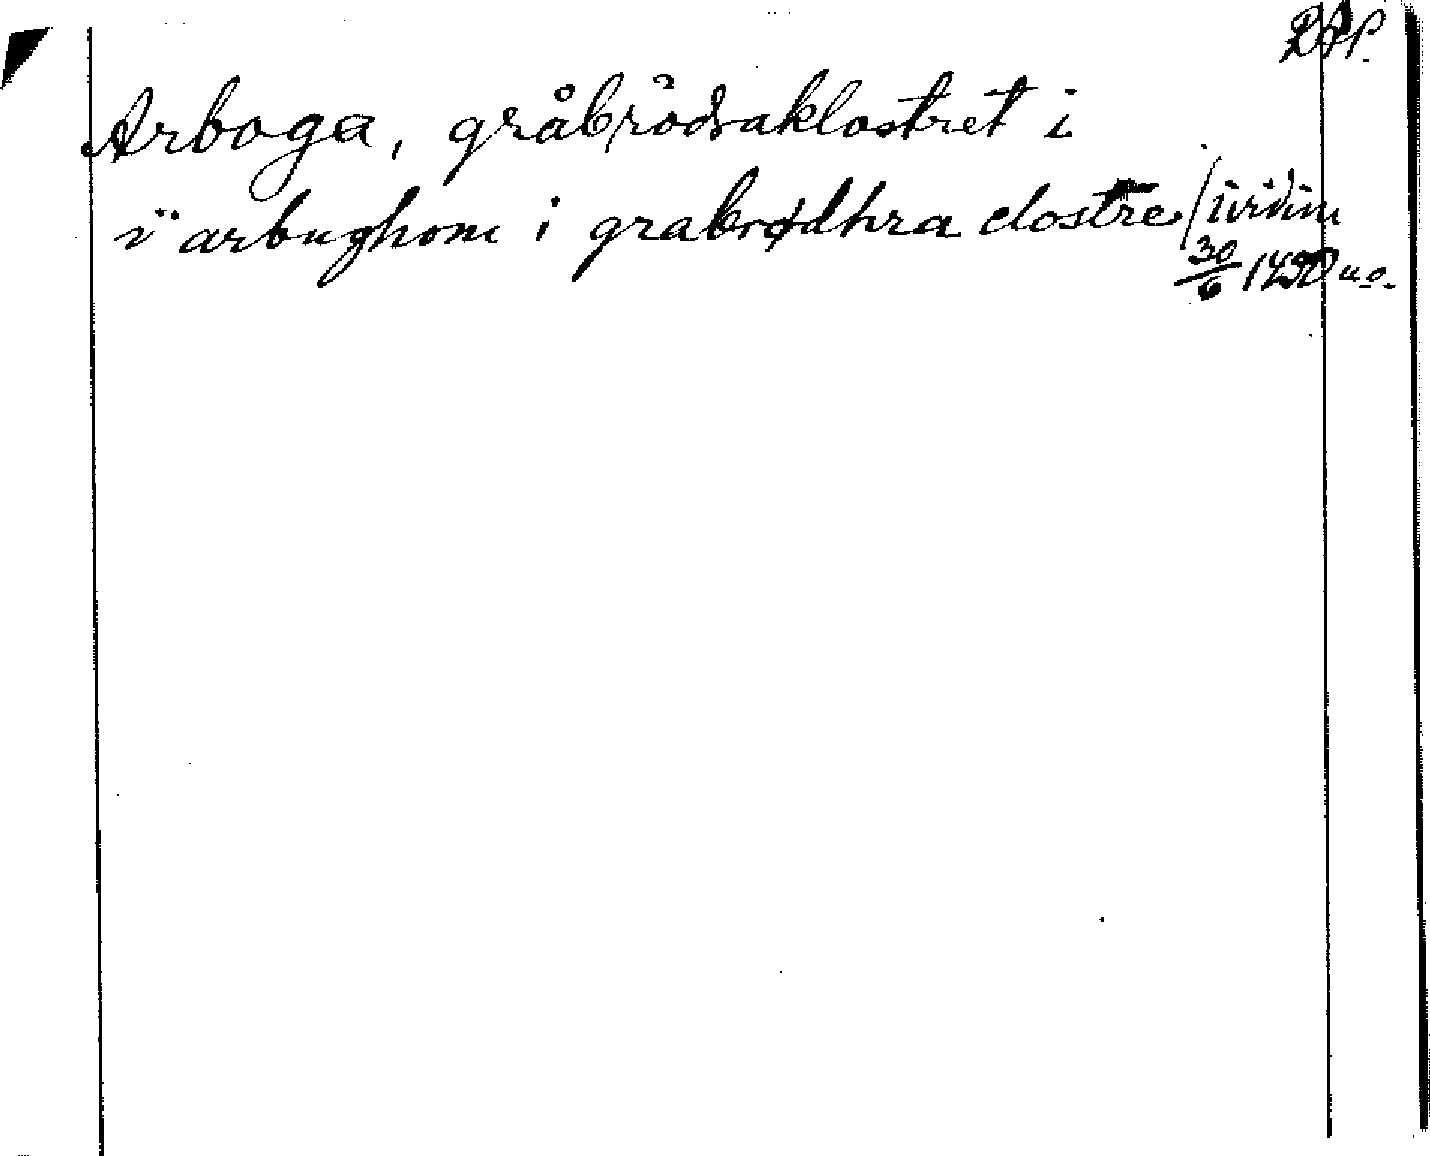 RAP.
Arboga, gråbrödraklostret i
i arbughom i grabrødhra clostre / i vidim
30/6 1450 u.o.